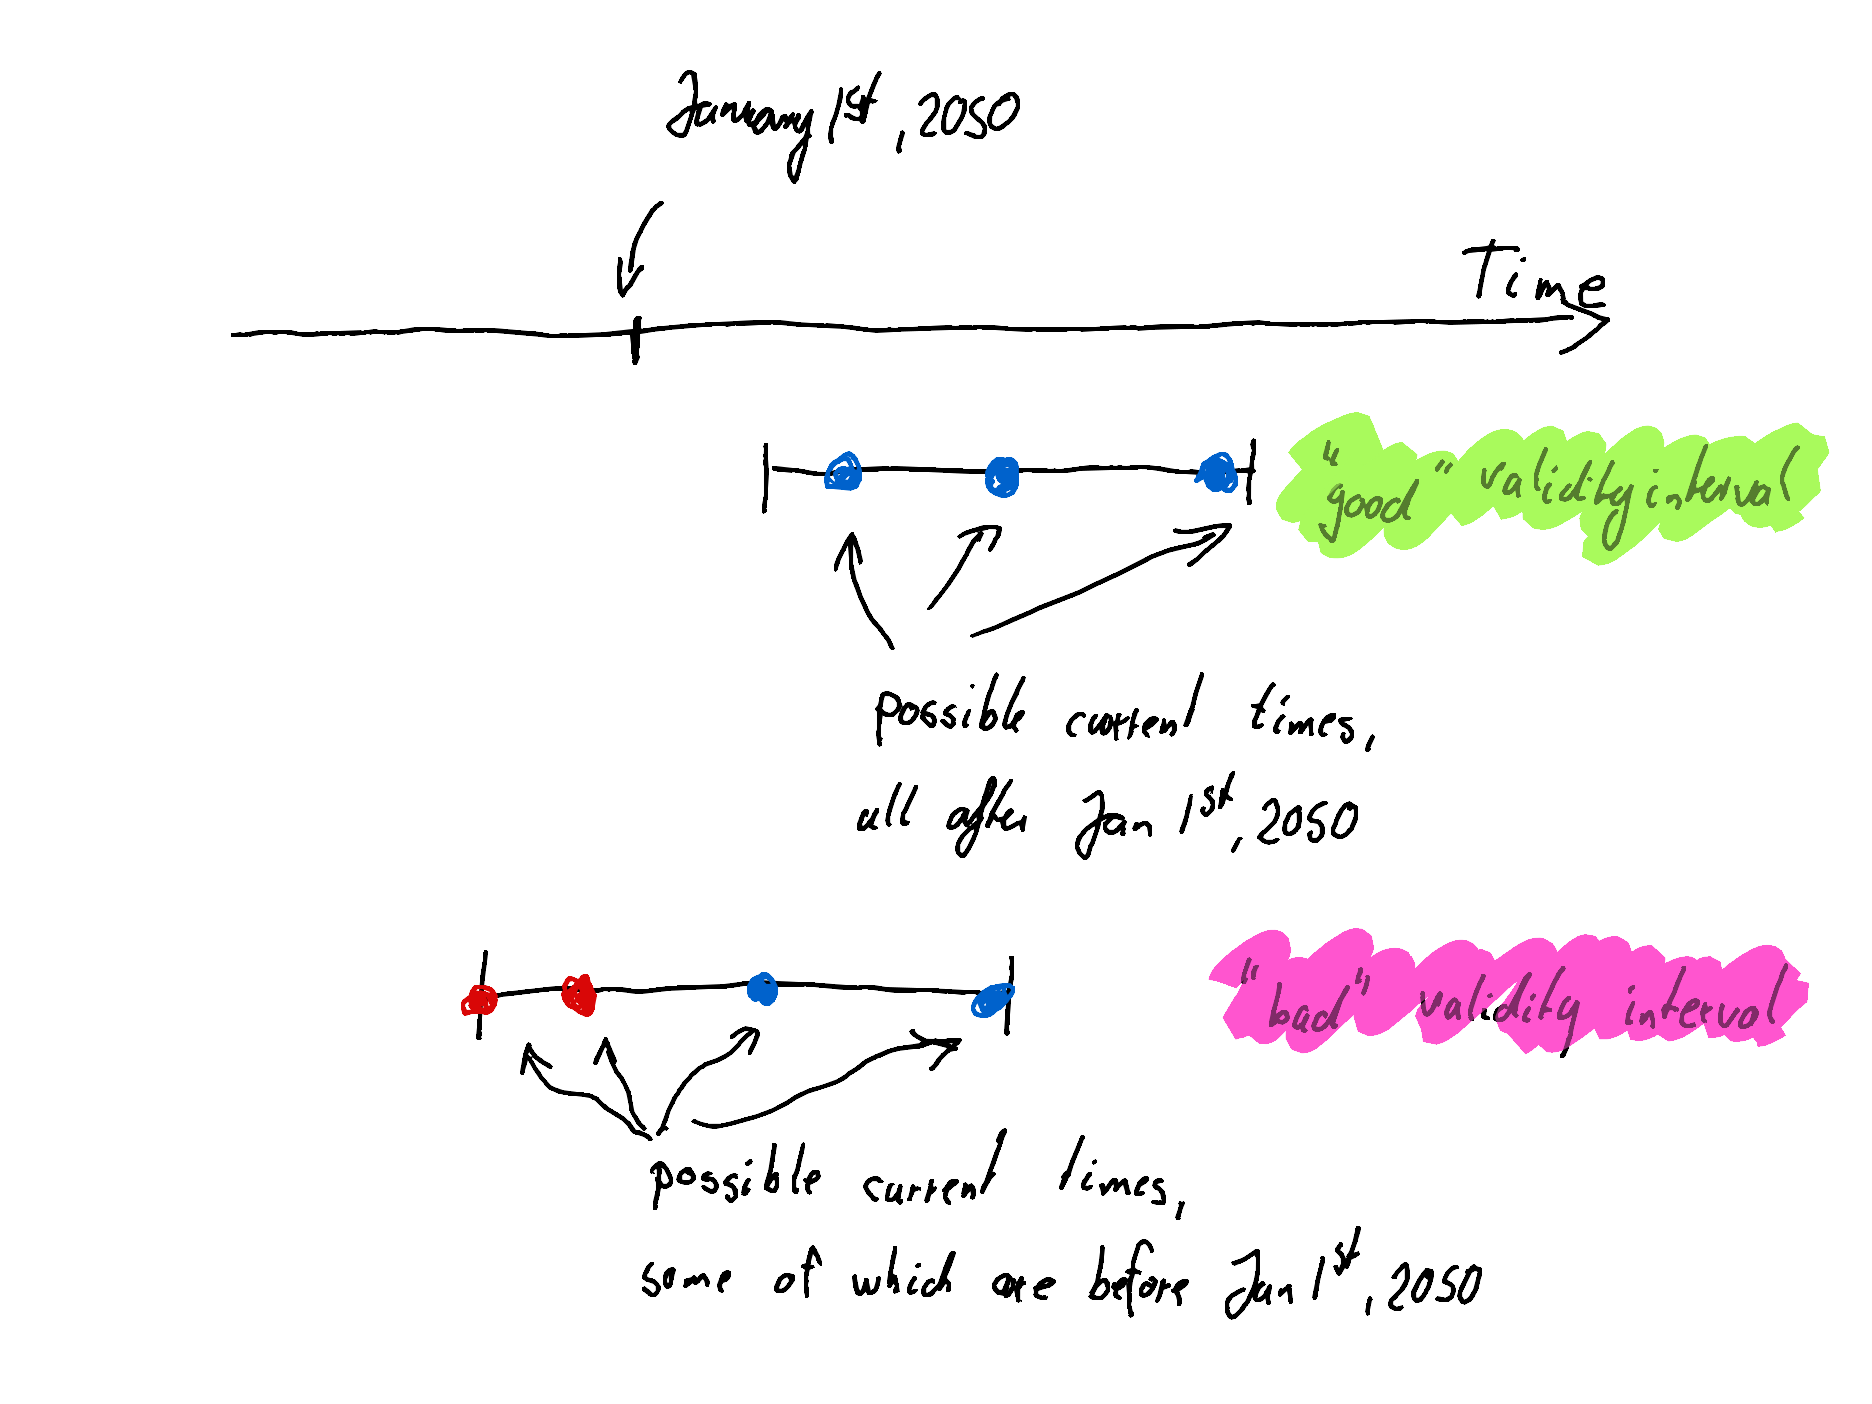 January 1st, 2050
Time
"good" validity interval
possible current times,
all after Jan 1st, 2050
"bad" validity interval
possible current times,
some of which are before Jan 1st, 2050